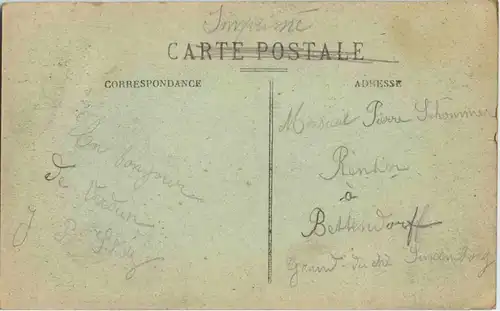 Imprimé
CARTE POSTALE
CORRESPONDANCE
ADRESSE
Un bonjour
de Verdun
Pierre
Rentier
à
Bettendorff
Grand-duché Luxembourg